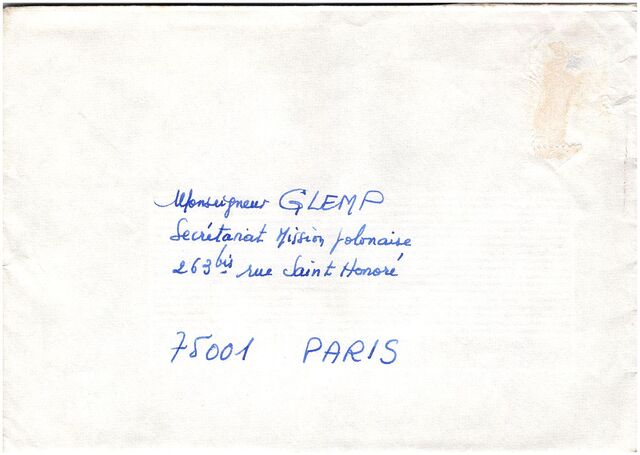 Monseigneur GLEMP
Secrétariat Mission polonaise
263bis rue Saint Honoré
75001 PARIS